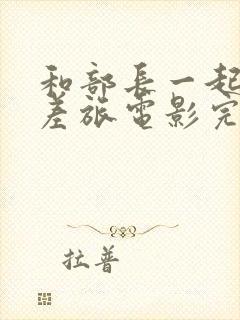 和部长一起
差旅电影完
拉普